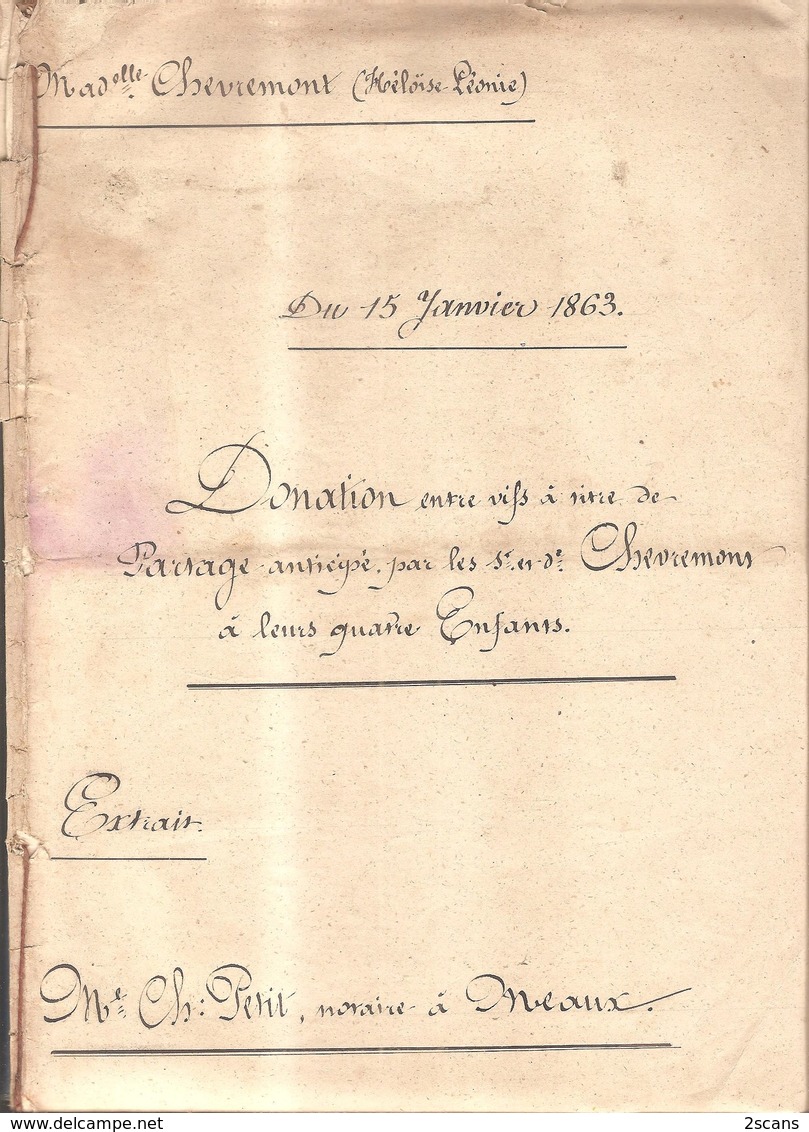 Mad.elle Chevremont (Héloïse Léonie)
Du 15 Janvier 1863.
Donation entre vifs à titre de
Partage anticipé, par les Sr. et De. Chevremont
à leurs quatre Enfants.
Extrait.
Me. Ch: Petit, notaire à Meaux.
2scans